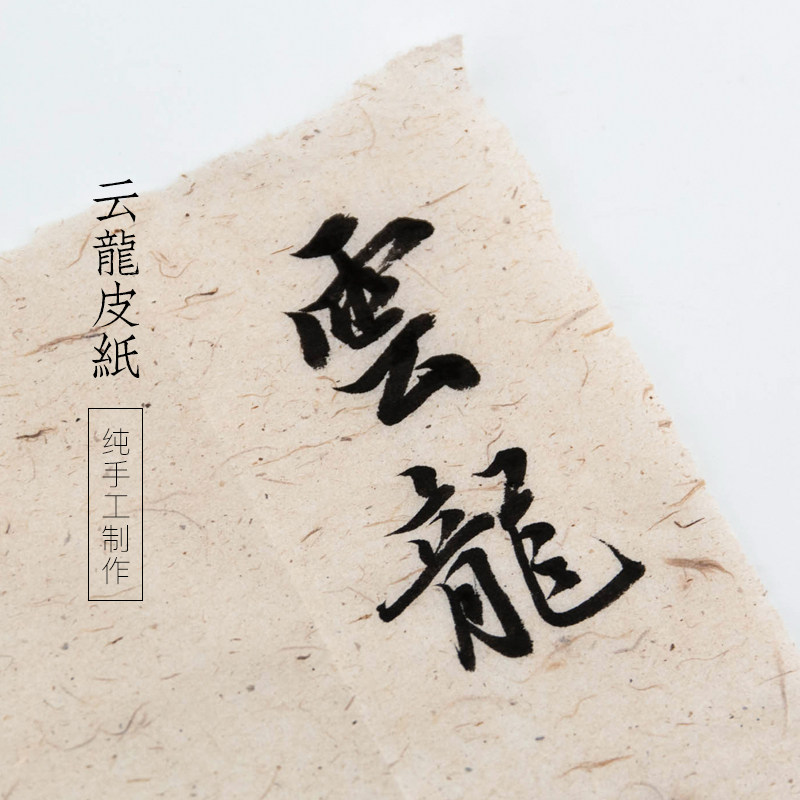 雲龍
云龍皮紙
纯手工制作